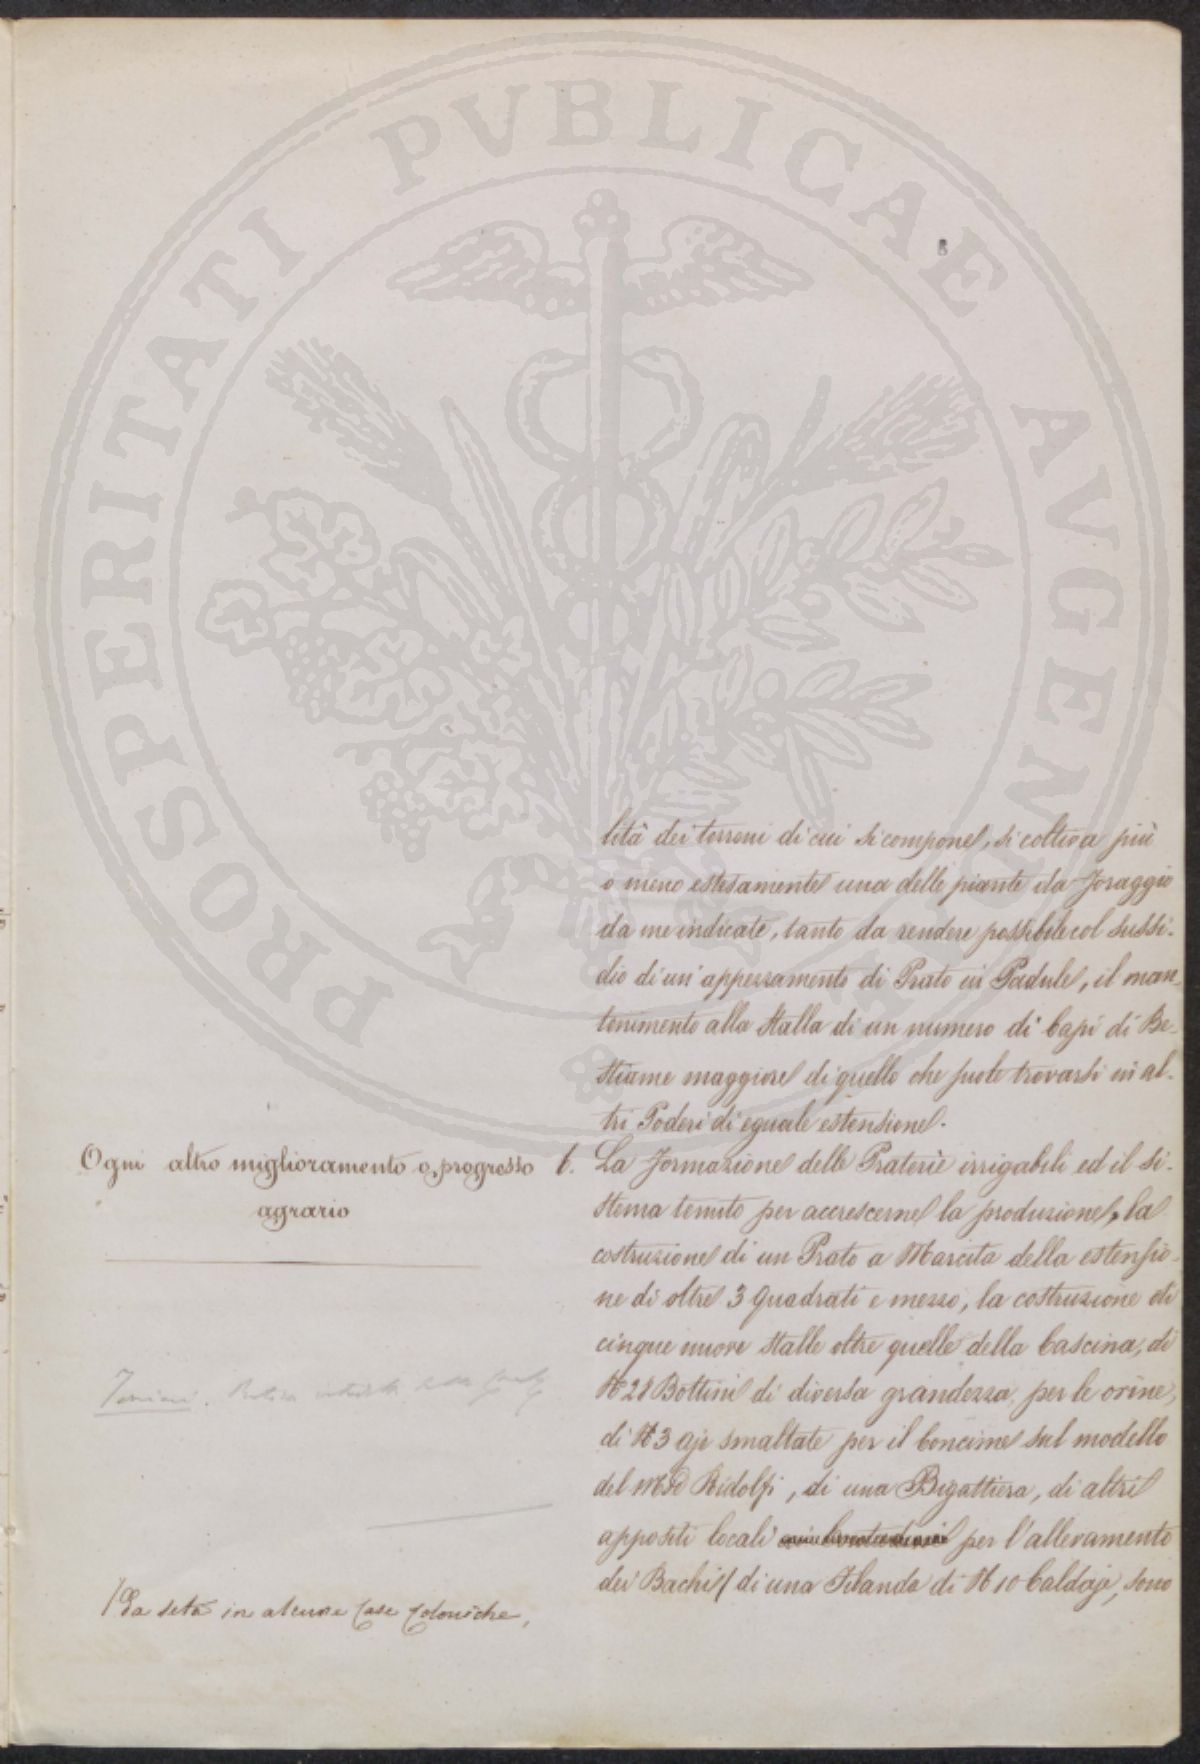 PROSPERITATI PVBLICAE AVGENDAE
lità dei terreni di cui si compone, si coltiva più
o meno estesamente una delle piante da foraggio
da me indicate, tanto da rendere possibile col sussi-
dio di un' appezzamento di Prato in Padule, il man-
tenimento alla Stalla di un numero di Capi di Be-
stiame maggiore di quello che puole trovarsi in al-
tri Poderi di eguale estensione.
Ogni altro miglioramento e progresso
agrario
6. La formazione delle Praterie irrigabili ed il si-
stema tenuto per accrescerne la produzione, la
costruzione di un Prato a Marcita della estensio-
ne di oltre 3 Quadrati e mezzo, la costruzione di
cinque nuove Stalle oltre quelle della Cascina, di
N 28 Bottini di diversa grandezza, per le orine,
di N 3 aje smaltate per il Concime sul modello
del Mse Ridolfi, di una Bigattiera, di altri
appositi locali per l'allevamento
dei Bachi / di una Filanda di N 10 Caldaje, sono
/ Da seta in alcune Case Coloniche,